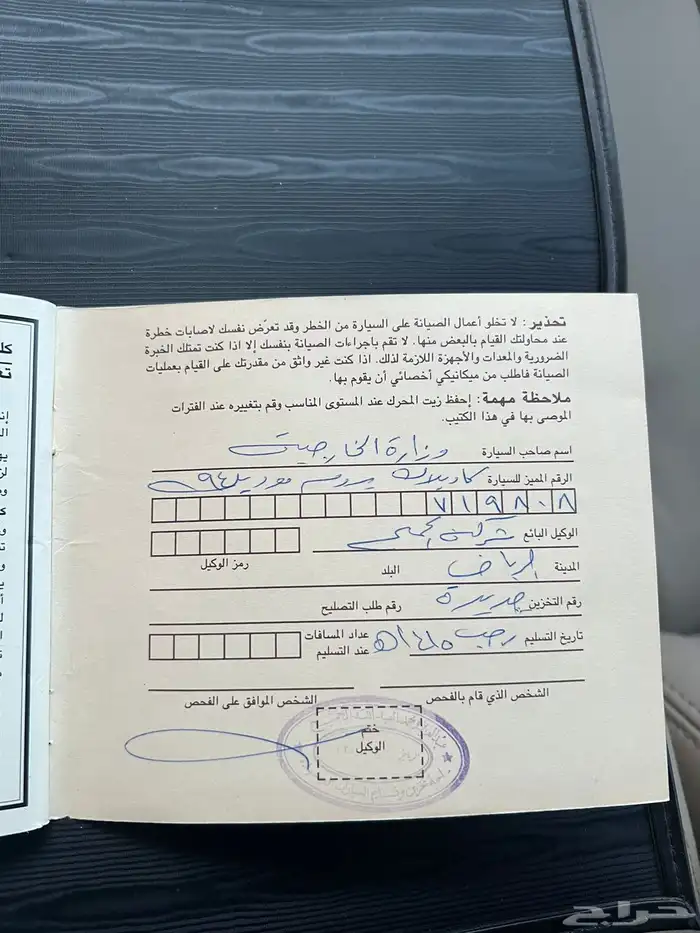 تحذير : لا تخلو أعمال الصيانة على السيارة من الخطر وقد تعرّض نفسك لاصابات خطرة
عند محاولتك القيام بالبعض منها. لا تقم باجراءات الصيانة بنفسك إلا اذا كنت تمتلك الخبرة
الضرورية والمعدات والأجهزة اللازمة لذلك. اذا كنت غير واثق من مقدرتك على القيام بعمليات
الصيانة فاطلب من ميكانيكي أخصائي أن يقوم بها.
ملاحظة مهمة: إحفظ زيت المحرك عند المستوى المناسب وقم بتغييره عند الفترات
الموصى بها في هذا الكتيب.
اسم صاحب السيارة وزارة الخارجية
الرقم المميز للسيارة كاديلاك بروم موديل ٩٤
٧١٩٨٠٨
الوكيل البائع شركة الجميح
رمز الوكيل
المدينة الرياض البلد
رقم التخزين جديدة رقم طلب التصليح
تاريخ التسليم رجب ١٤١٥هـ عداد المسافات
عند التسليم
الشخص الذي قام بالفحص الشخص الموافق على الفحص
ختم
الوكيل
حراج